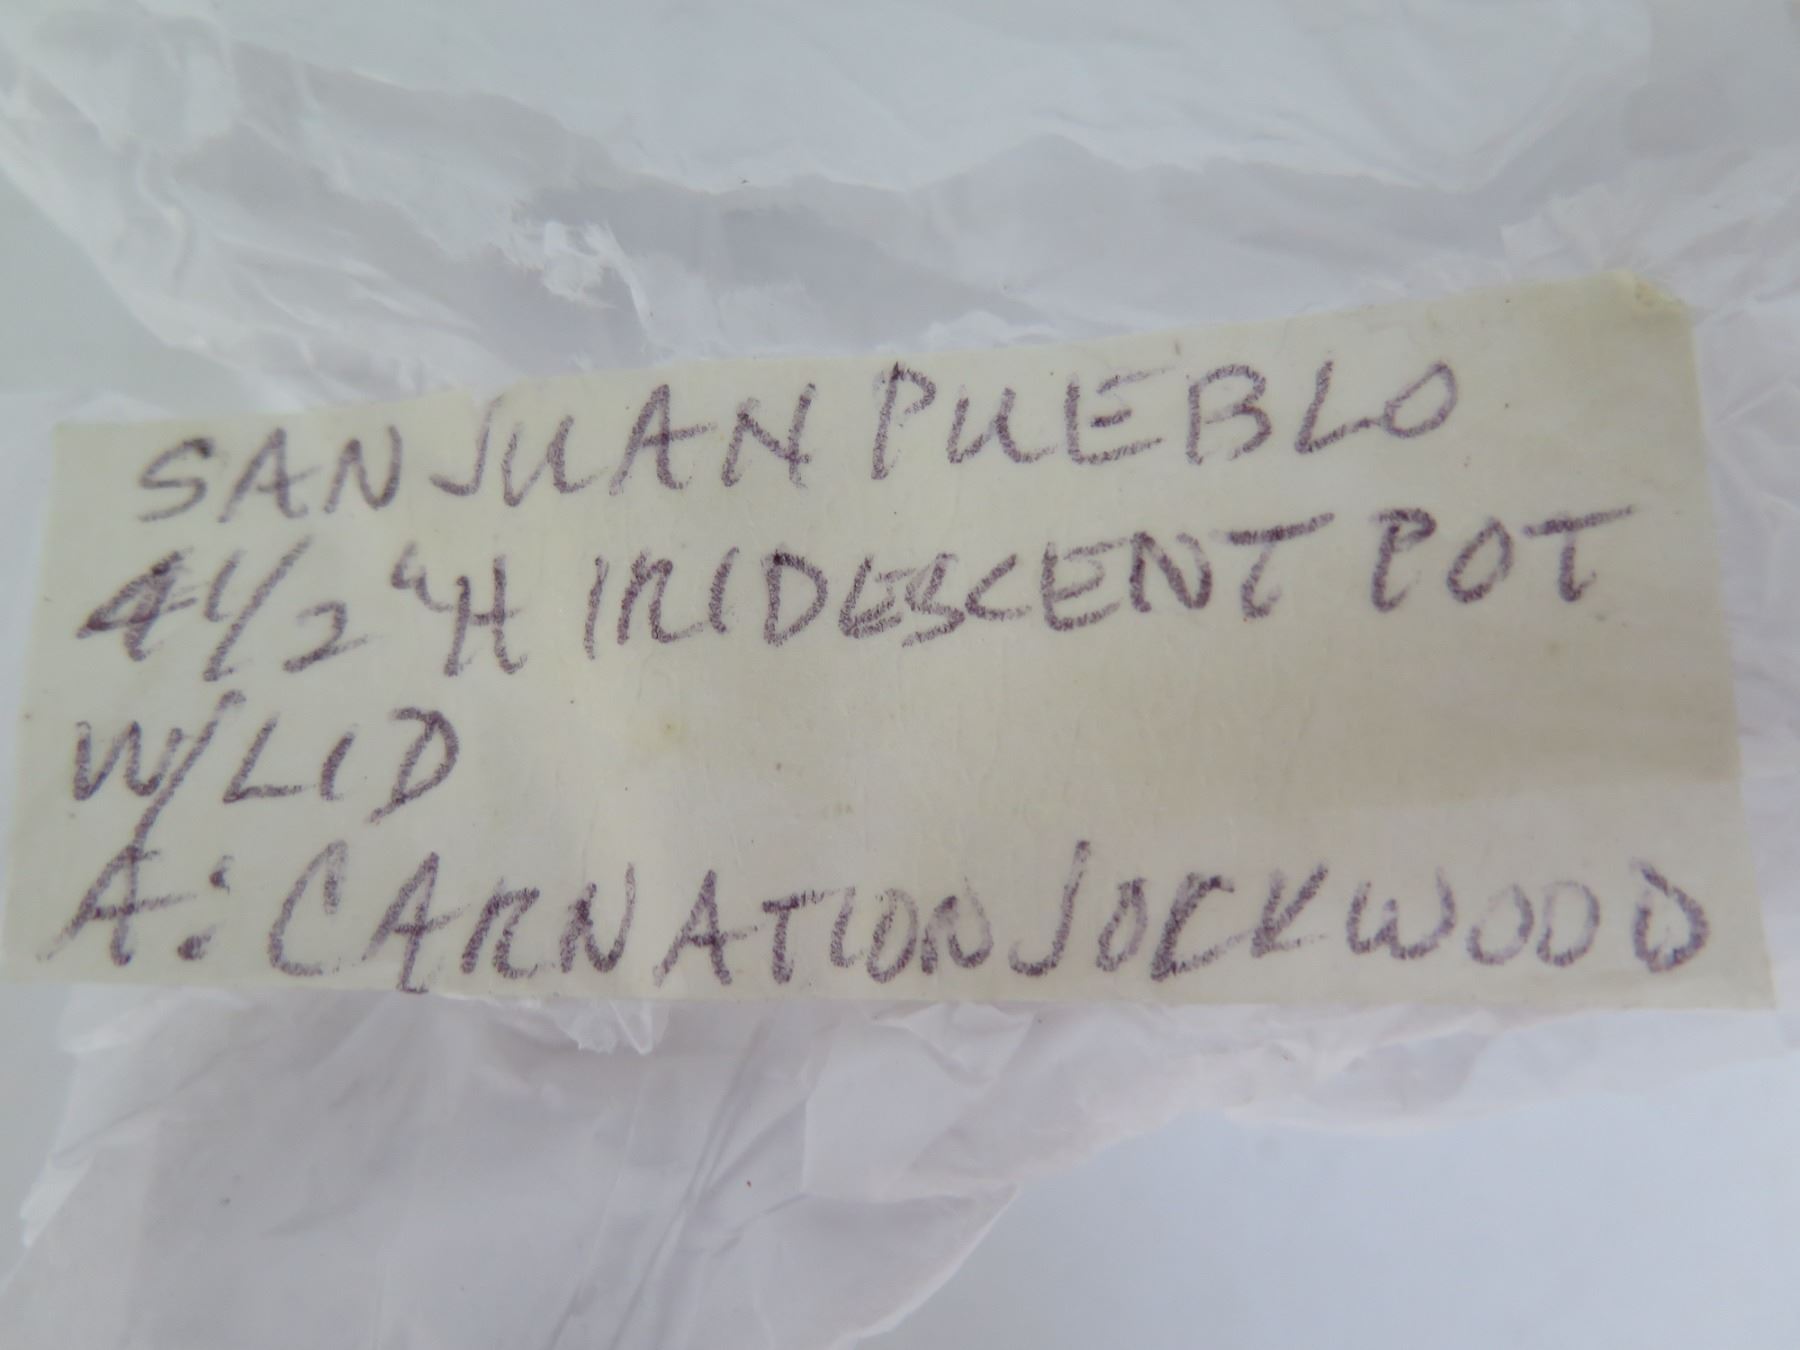 SAN JUAN PUEBLO
4 1/2 "H IRIDESCENT POT
W/LID
A: CARNATION JOCKWOOD